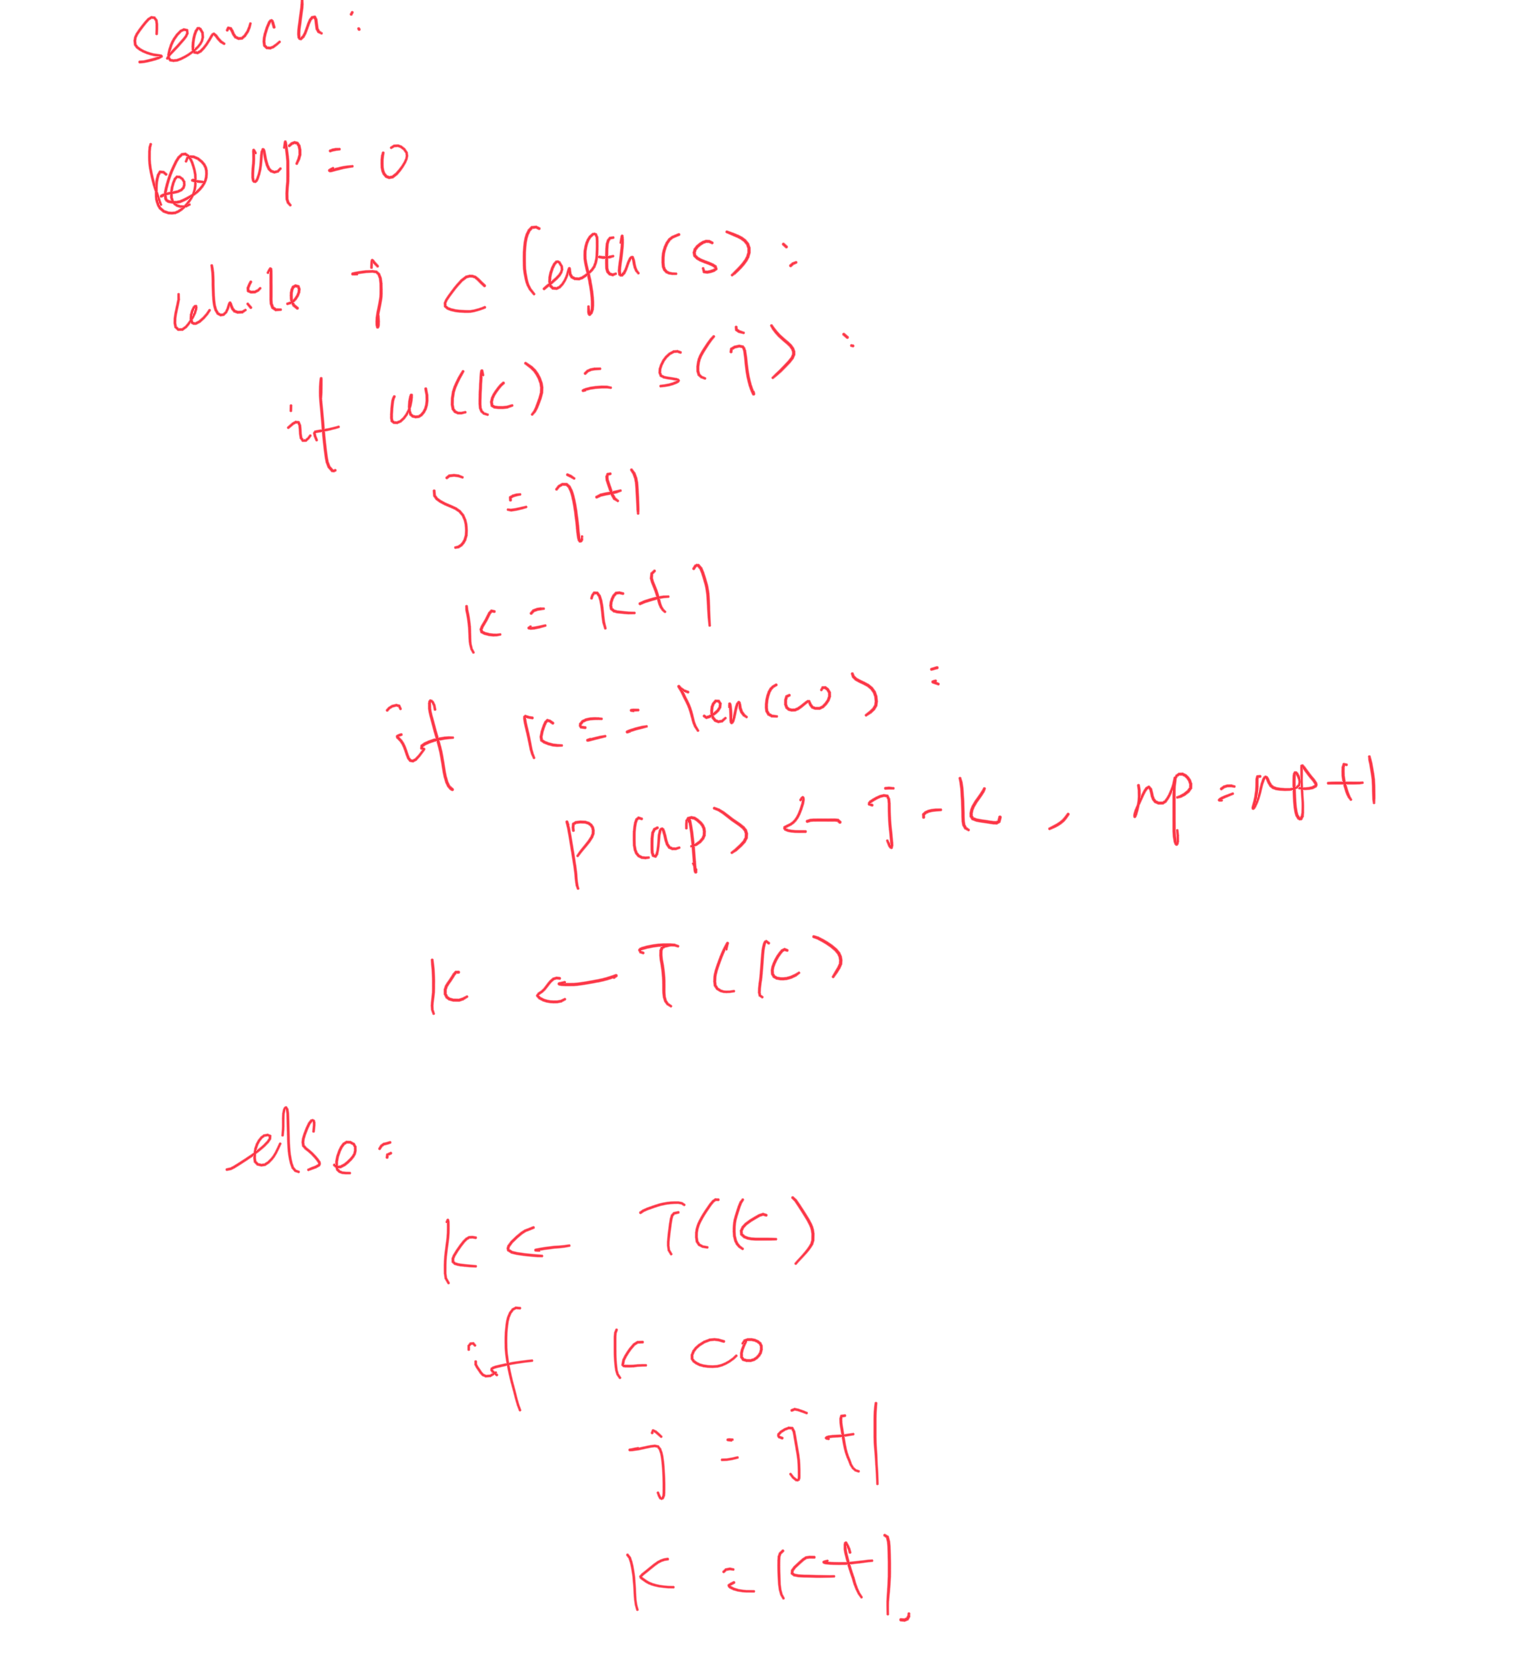 Search:
let np = 0
while j < length(S):
if w(k) = s(j):
j = j+1
k = k+1
if k == len(w):
p(np) ← j-k, np = np+1
k ← T(k)
else:
k ← T(k)
if k <0
j = j+1
k = k+1.